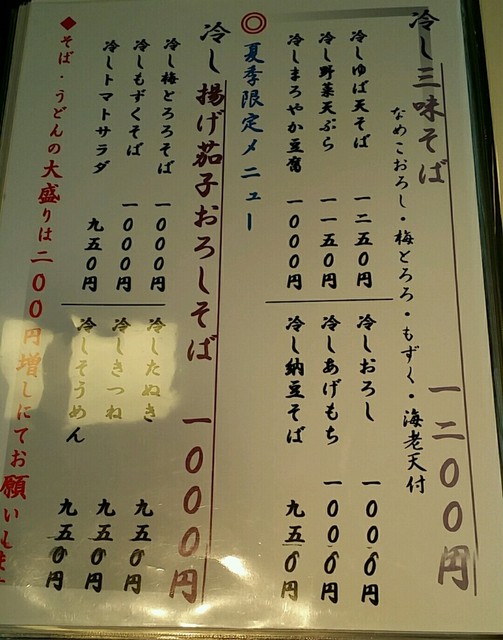 冷し三味そば 一二00円
なめこおろし・梅とろろ・もずく・海老天付
冷しゆば天そば 一二五0円
冷し野菜天ぷら 一一五0円
冷しまろやか豆腐 一000円
冷しおろし 一000円
冷しあげもち 一000円
冷し納豆そば 九五0円
◎夏季限定メニュー
冷し揚げ茄子おろしそば 一000円
冷し梅とろろそば 一000円
冷しもずくそば 一000円
冷しトマトサラダ 九五0円
冷したぬき 九五0円
冷しきつね 九五0円
冷しそうめん 九五0円
◆そば・うどんの大盛りは二00円増しにてお願いします